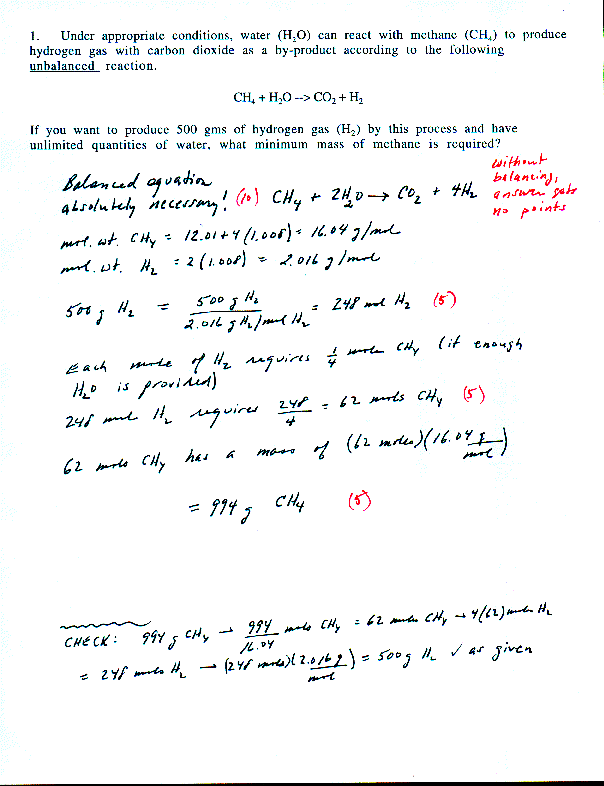 1. Under appropriate conditions, water (H₂O) can react with methane (CH₄) to produce
hydrogen gas with carbon dioxide as a by-product according to the following
unbalanced reaction.
CH₄ + H₂O --> CO₂ + H₂
If you want to produce 500 gms of hydrogen gas (H₂) by this process and have
unlimited quantities of water, what minimum mass of methane is required?
Balanced equation
absolutely necessary! (10) CH₄ + 2H₂O → CO₂ + 4H₂
without
balancing,
answer gets
no points
mol. wt. CH₄ = 12.01 + 4 (1.008) = 16.04 g/mol
mol. wt. H₂ = 2 (1.008) = 2.016 g/mol
500 g H₂ = 500 g H₂ / 2.016 g H₂/mol H₂ = 248 mol H₂ (5)
Each mole of H₂ requires 1/4 mole CH₄ (if enough
H₂O is provided)
248 mol H₂ requires 248/4 = 62 mols CH₄ (5)
62 mols CH₄ has a mass of (62 moles)(16.04 g/mol)
= 994 g CH₄ (5)
CHECK: 994 g CH₄ → 994/16.04 mols CH₄ = 62 moles CH₄ → 4(62) moles H₂
= 248 moles H₂ → (248 moles)(2.016 g/mol) = 500 g H₂ ✓ as given